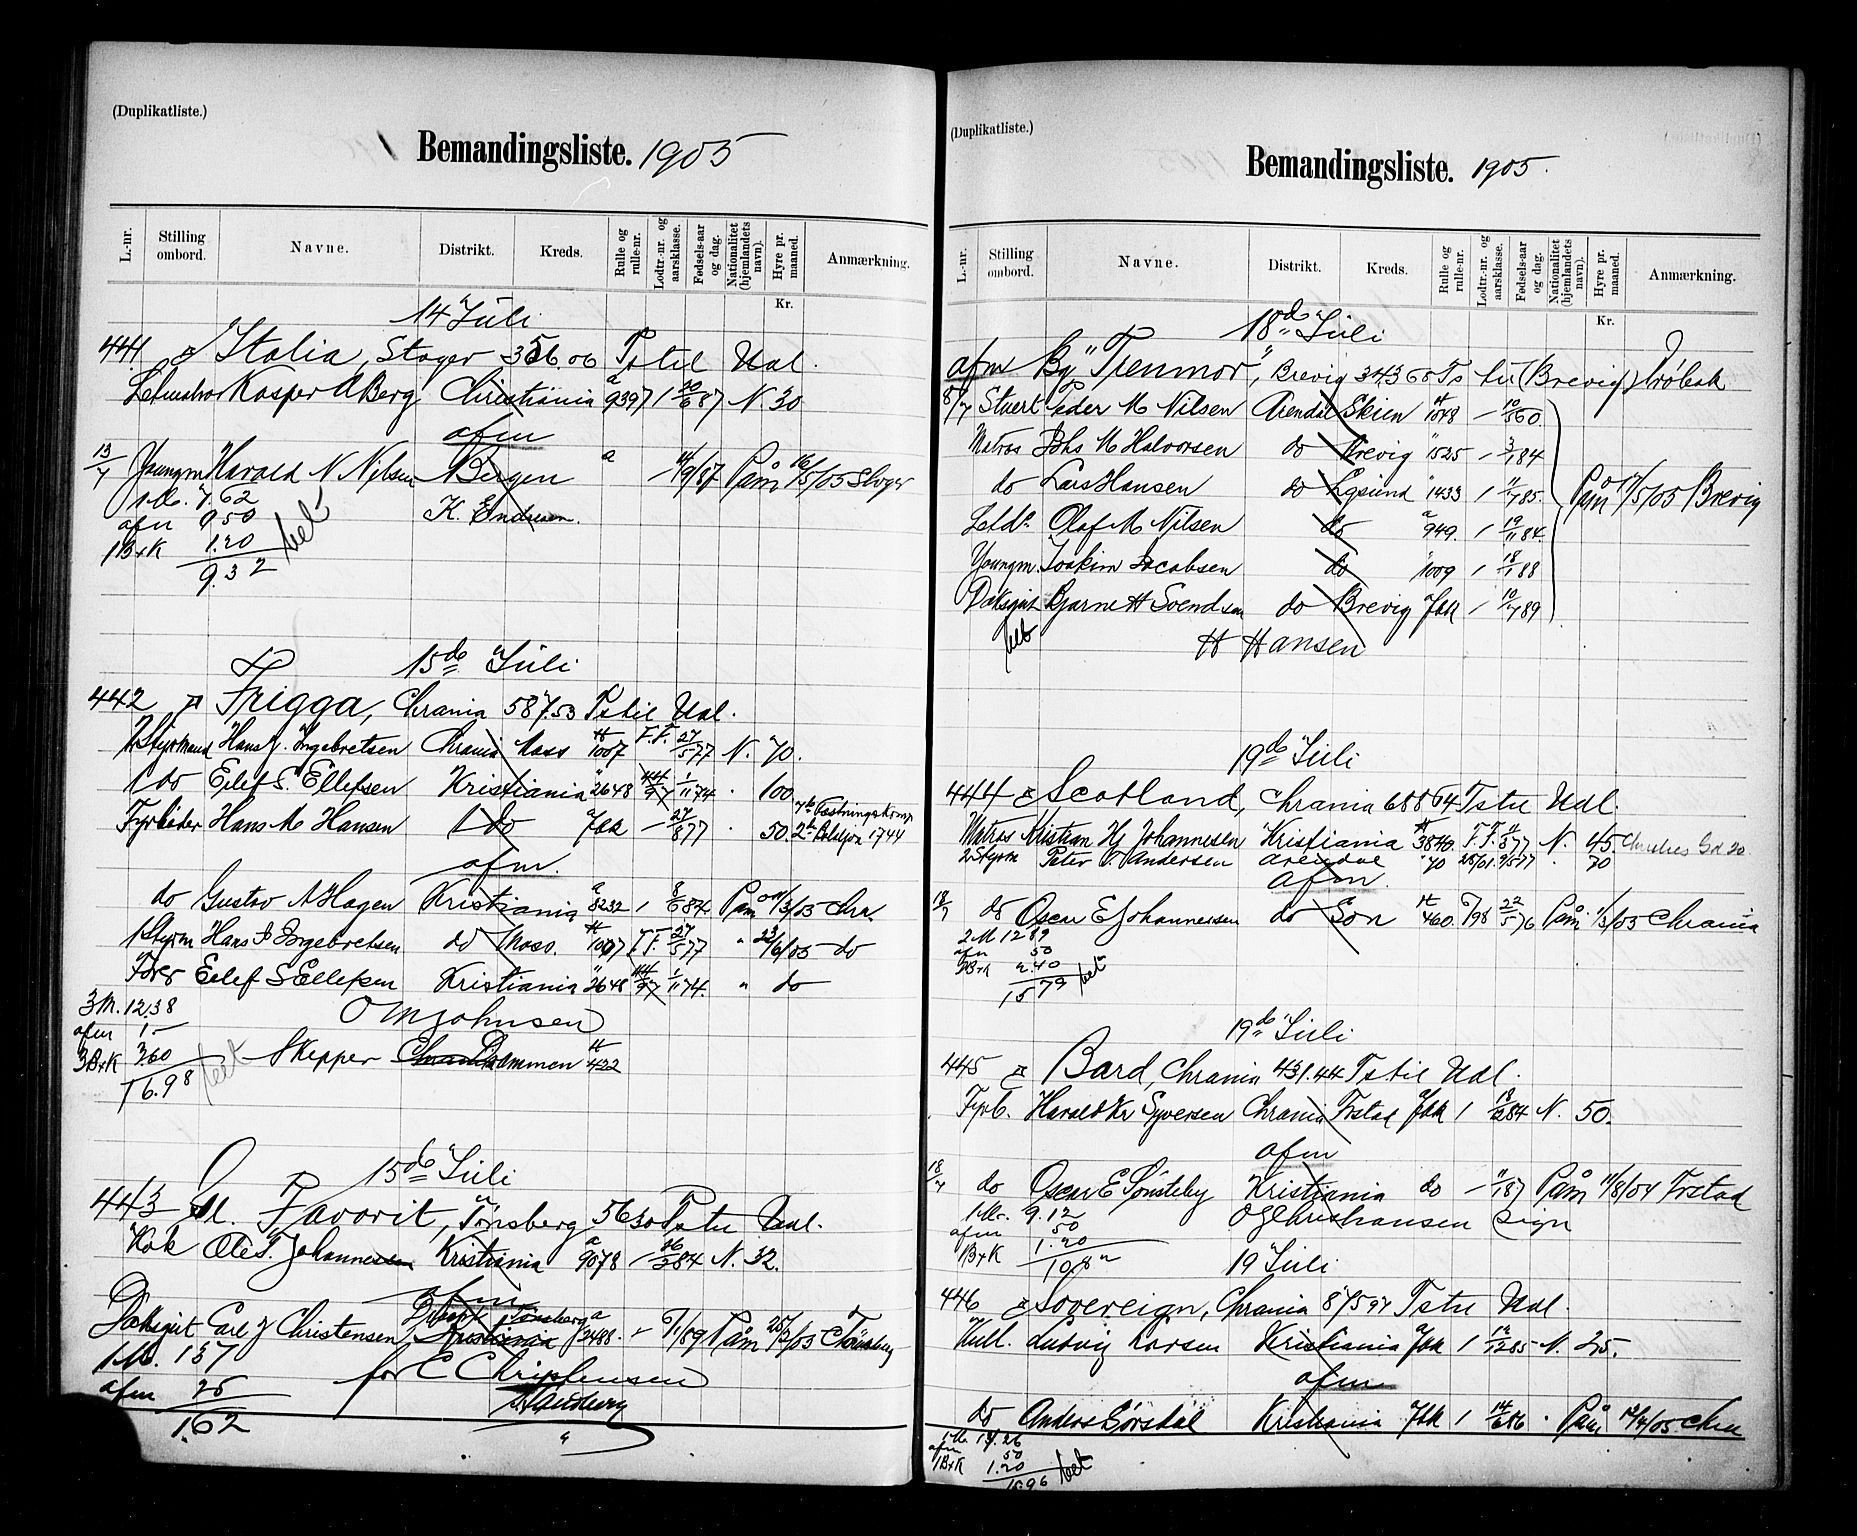 (Duplikatliste.)
Bemandingsliste. 1905
L.-nr. Stilling ombord. Navne. Distrikt. Kreds. Rulle og rulle-nr. Lodtr.-nr. og aarsklasse. Fødsels-aar og dag. Nationalitet (hjemlandets navn). Hyre pr. maaned. Anmærkning.
Kr.
14 Juli
441 Italia, Stager 356 06 Ts til Udl.
Letmatros Kasper A Berg Christiania a 9397 1 20/6 87 N. 30
afm
13/7 Youngm Harald N Nilsen Bergen a 14/9/87 Påm 16/5/05 Slager
1 M. 7.62
afm 9.50
K. Endresen.
1 B+K 1.20
9.32 bet
15de Juli
442 Frigga, Chrania 587.53 Ts til Udl.
2 Styrmand Hans J. Ingebretsen Chrania Moss 1007 F.F. 27/5 77 N. 70.
1 do Eilef S. Ellefsen Kristiania 2648 44/97 1/11 74 " 100
Fyrbøder Hans M Hansen do Fdk – 27/8 77 " 50. 2den 1744
afm.
do Gustav A Hagen Kristiania a 8232 1 8/6 84 Påm 11/3/05 Chra.
1 Styrm Hans J Ingebretsen do Moss. 1007 F.F. 27/5 77 " 23/6/05 do
Fører Eilef S Ellefsen Kristiania " 2648 44/97 1/11 74. " do
3 M. 12.38
O M Johnsen
afm 1.–
3 B+K 3.60 Skipper Drammen 422
16.98 bet
15de Juli
443 Favorit, Tønsberg 56 30 Ts til Udl.
Kok Ole T. Johannessen Kristiania a 9078 1 26/3 84 N. 32.
afm
Dæksgut Carl J Christensen Tønsberg a 2488 – 6/1/89 Påm 25/2/05 Tønsberg
1 M. 1.37 for C Christensen
afm 25
1.62
(Duplikatliste.)
Bemandingsliste. 1905.
L.-nr. Stilling ombord. Navne. Distrikt. Kreds. Rulle og rulle-nr. Lodtr.-nr. og aarsklasse. Fødsels-aar og dag. Nationalitet (hjemlandets navn). Hyre pr. maaned. Anmærkning.
Kr.
18de Juli
afm Bg "Trenmor", Brevig 343 68 Ts til (Brevig) Drøbak
8/7 Stuert Peder M Nilsen Arendal Skien 1048 – 10/8 60.
Matros Johs M Halvorsen do Brevig " 525 – 3/1 84
do Lars Hansen do Egsund " 1433 1 11/7 85. Påm 17/5/05 Brevig
Letm. Olaf M Nilsen do a 949. 1 19/11 84.
Youngm. Joakim Jacobsen do " 1009 1 18/1 88
Dæksgut Bjarne H Svendsen do Brevig Fdk – 10/7 89
bet H Hansen
19de Juli
444 Scotland, Chrania 688 64 Ts til Udl.
Matros Kristian Hj Johannesen Kristiania 3840. F.F. 11/5 77 N. 45.
2 Styrm Peter O. Andersen Arendal " 70 25/01. 9/5 77 " 70
afm.
18/7 do Oscar E Johannessen do Son 460. 6/98 22/5 76 Påm 1/3/05 Chrania
2 M 12 89
afm 50
2 B+K 2.40
15 79 bet
19de Juli
445 Bard, Chrania 431.44 Ts til Udl.
Fyrb. Harald Kr Syversen Chrania Frstad Fdk 1 18/2 84 N. 50.
afm
18/7 do Oscar E Sønsteby Kristiania do – "/1 87 Påm 11/8/04 Frstad
1 M. 9.12 O G Christiansen sign
afm 50
B+K 1.20
10.82
19 Juli
446 Sovereign, Chrania 875 97 Ts til Udl.
Kull. Ludvig Larsen Kristiania Fdk 1 12/12 85 N. 25.
afm
do Anders Børsdal Kristiania Fdk 1 14/6 86 . Påm 12/4/05 Chra
1 M. 14.26
afm 50
1 B+K 1.20
15.96 bet